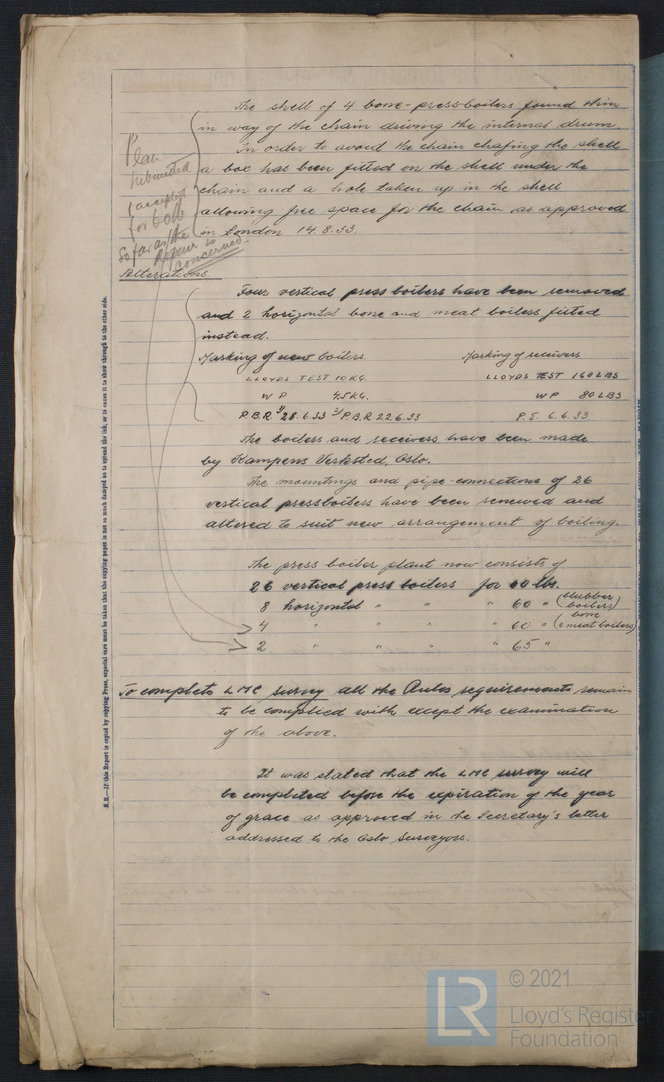 The shell of 4 bone-pressboilers found thin
in way of the chain driving the internal drum.
In order to avoid the chain chafing the shell
a box has been fitted on the shell under the
chain and a hole taken up in the shell
allowing free space for the chain as approved
in London 14.8.33.
Plan
submitted
& accepted
for both
So far as the
Repair is
concerned.
Alterations
Four vertical press boilers have been removed
and 2 horizontal bone and meat boilers fitted
instead.
Marking of new boilers. Marking of receivers
LLOYDS TEST 10 KG. LLOYDS TEST 160 LBS
W P 4.5 KG. W P 80 LBS
P.B.R. 28.6.33 P.B.R. 22.6.33 P.S. 6.6.33
The boilers and receivers have been made
by Kampens Verksted, Oslo.
The mountings and pipe-connections of 26
vertical pressboilers have been renewed and
altered to suit new arrangement of boiling.
The press boiler plant now consists of
26 vertical press boilers for 60 lbs.
8 horizontal " " " 60 " (blubber boilers)
4 " " " 60 " (bone & meat boilers)
2 " " " 65 "
To complete LMC survey all the Rules requirements remain
to be complied with except the examination
of the above.
It was stated that the LMC survey will
be completed before the expiration of the year
of grace as approved in the Secretary's letter
addressed to the Oslo surveyors.
N.B.—If this Report is copied by copying Press, especial care must be taken that the copying paper is not so much damped as to spread the ink, or to cause it to show through to the other side.
LR
© 2021
Lloyd's Register
Foundation